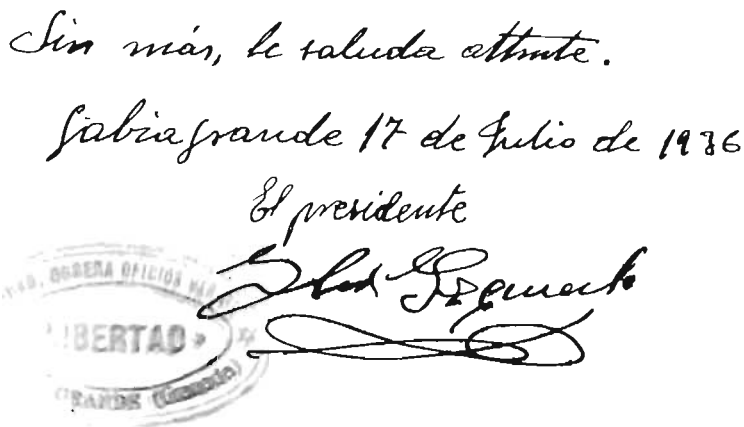 Sin más, le saluda attmte.
Gabia grande 17 de Julio de 1936
El presidente
OBRERA OFICIOS
LIBERTAD
GRANDE (Granada)